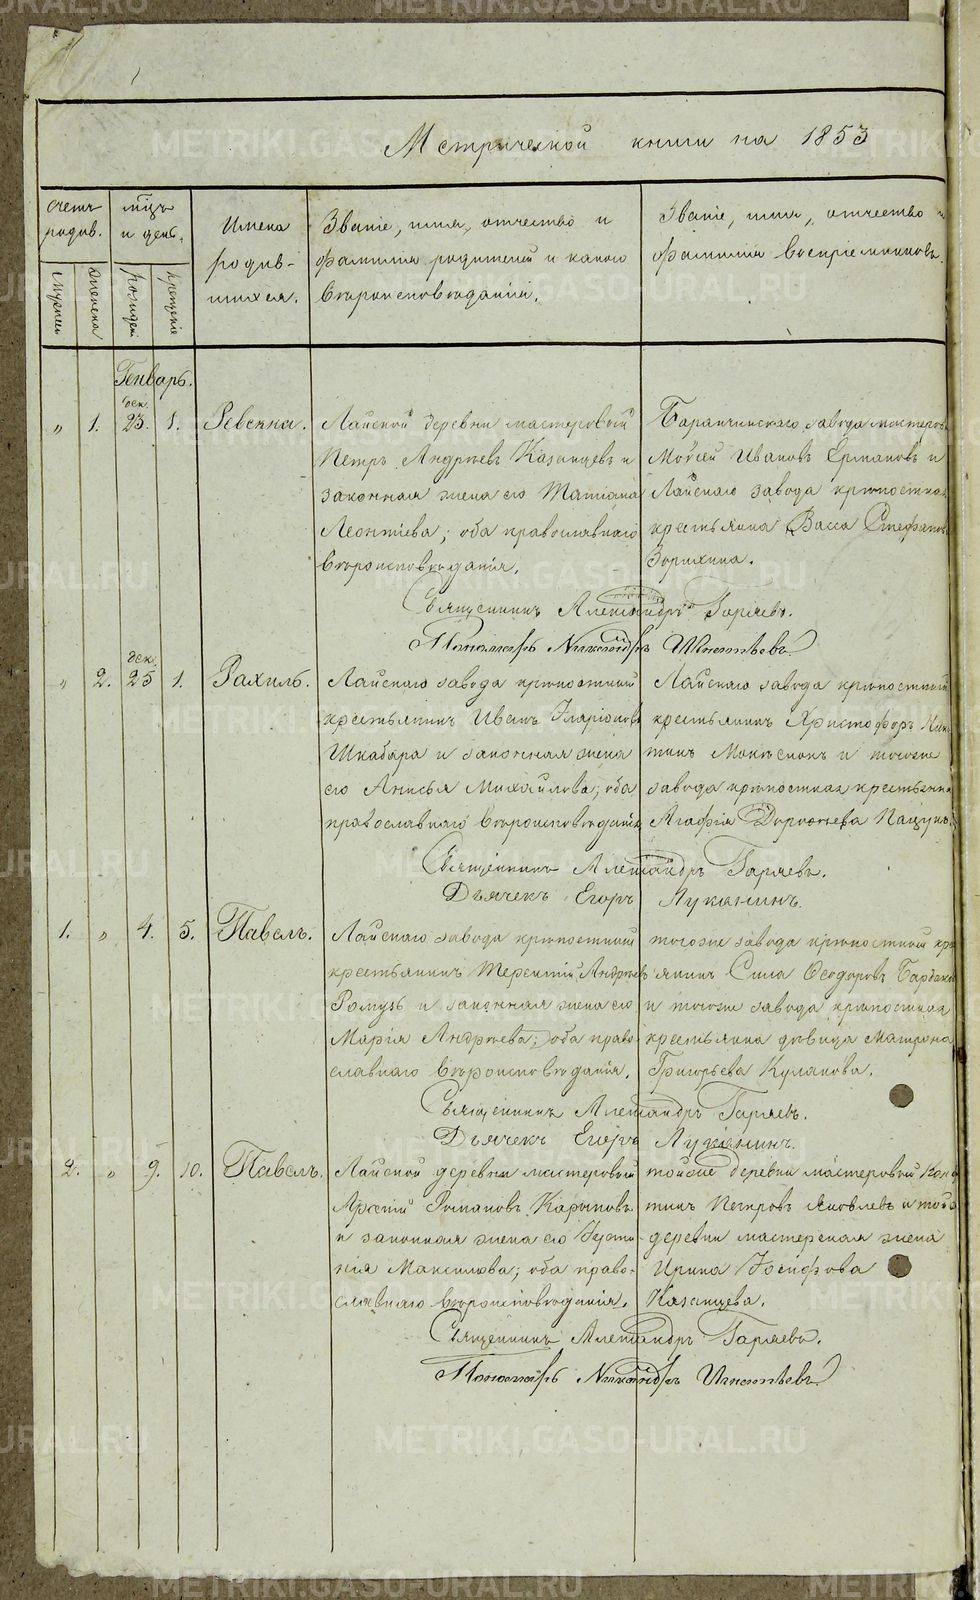 METRIKI.GASO-URAL.RU
Метрической книги на 1853
счетъ родив.
мѣцъ и день.
Имена родив-шихся.
Званіе, имя, отчество и
фамилія родителей и какого
вѣроисповѣданія.
Званіе, имя, отчество и
фамилія воспріемниковъ.
мужеска
женска
рожденія
крещенія
Генварь.
„ 1. дек. 23. 1. Ревекка.
Лайской деревни мастеровый
Петръ Андреевъ Казанцевъ и
законная жена его Татіана
Леонтіева; оба православнаго
вѣроисповѣданія.
Баранчинскаго завода мастеров.
Мойсей Ивановъ Ермаковъ и
Лайскаго завода крѣпостная
крестьянка Васса Стефанов.
Зорихина.
Священникъ Александръ Гаряевъ.
Пономарь Никандръ Игнатьевъ
„ 2. дек. 25 1. Рахиль.
Лайскаго завода крѣпостный
крестьянинъ Иванъ Иларіоновъ
Шкабара и законная жена
его Анисья Михайлова; оба
православнаго вѣроисповѣданія
Лайскаго завода крѣпостный
крестьянинъ Христофоръ Ники
тинъ и тогоже
завода крѣпостная крестьянка
Агафія Дороѳеева
Священникъ Александръ Гаряевъ.
Дьячекъ Егоръ Луканинъ.
1. „ 4. 5. Павелъ.
Лайскаго завода крѣпостный
крестьянинъ Терентій Андреевъ
Ромузъ и законная жена его
Марія Андреева; оба право
славнаго вѣроисповѣданія.
тогоже завода крѣпостный кре
янинъ Сила Ѳеодоровъ
и тогоже завода крѣпостная
крестьянка дѣвица Матрона
Григорьева Кулакова.
Священникъ Александръ Гаряевъ.
Дьячекъ Егоръ Луканинъ.
2. „ 9. 10. Павелъ.
Лайской деревни мастеровый
Арсеній Романовъ Карповъ
и законная жена его Іусти-
нія Максимова; оба право-
славнаго вѣроисповѣданія.
тойже деревни мастеровый
тинъ Петровъ Яковлевъ и той
деревни мастерская жена
Ирина Іосифова
Казанцева.
Священникъ Александръ Гаряевъ.
Пономарь Никандръ Игнатьевъ